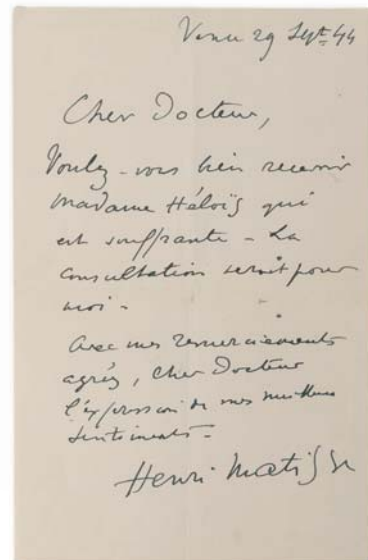 Vence 29 Sept 44
Cher Docteur,
Voulez-vous bien recevoir
Madame Héloïs qui
est souffrante - La
consultation serait pour
moi -
Avec mes remerciements
agréez, Cher Docteur
l'expression de mes meilleurs
sentiments -
Henri Matisse